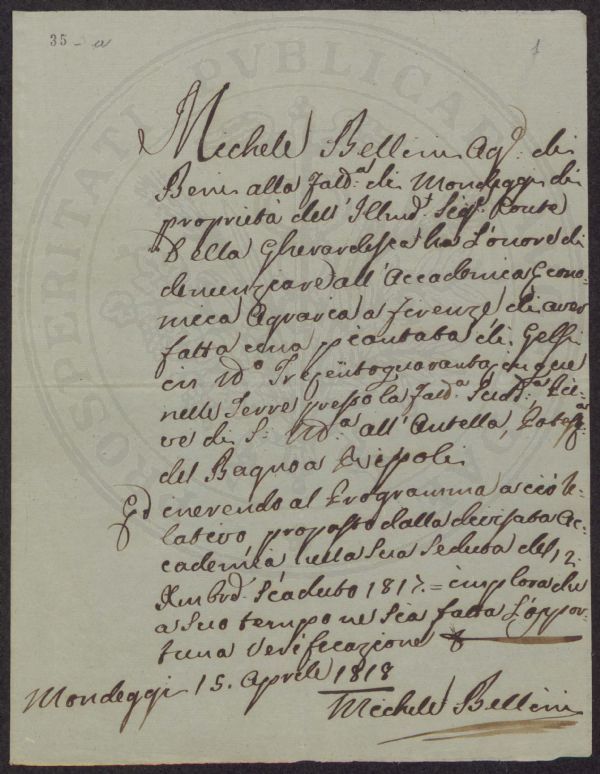 35 a
1
Michele Bellini Ag.e di
Beni alla Fatd.a di Mondeggi di
proprietà dell'Illmo. Sig.r Conte
Della Gherardesca ha l'onore di
denunziare all'Accademica Econo-
mica Agraria a Firenze di aver
fatta una piantata di Gelsi
in N.o Trecentoquarantacinque
nelle Terre presso la Fatd.a Sud.a Pie-
ve di S. M.a all'Antella, Potest.a
del Bagno a Ripoli
Ed inerendo al Programma a ciò re-
lativo proposto dalla divisata Ac-
cademia nella sua Seduta del 12.
Xmbre Scaduto 1817. = implora che
a suo tempo ne sia fatta l'oppor-
tuna Verificazione
Mondeggi 15. Aprile 1818
Michele Bellini
PROSPERITATI PVBLICAE